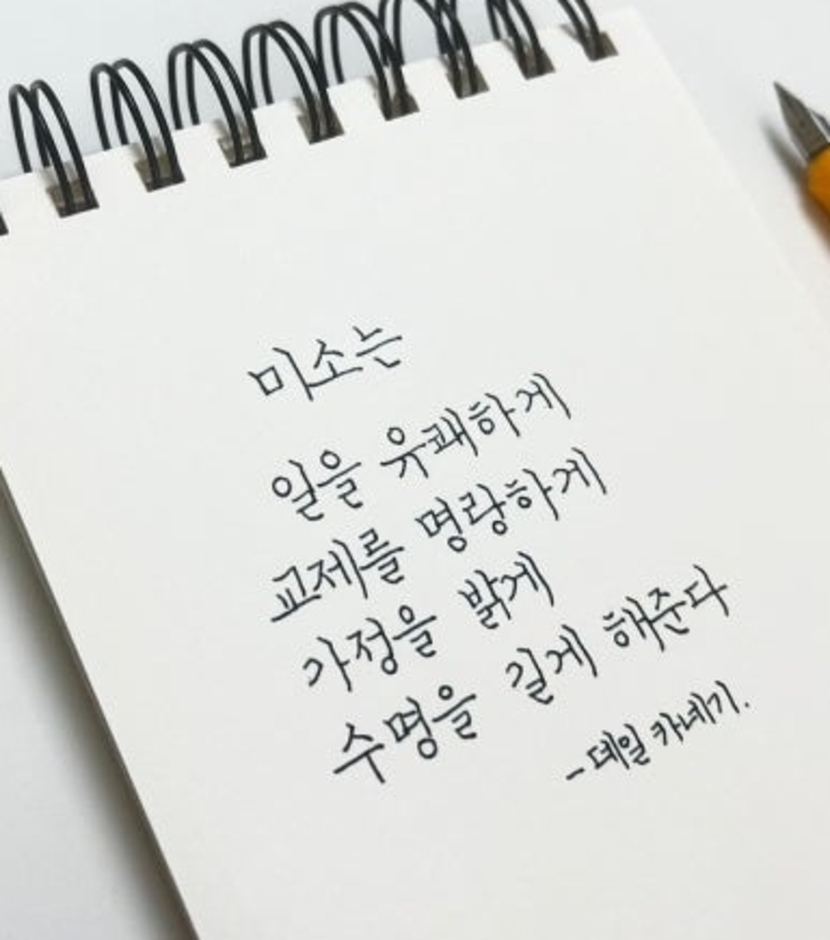 미소는
일을 유쾌하게
교제를 명랑하게
가정을 밝게
수명을 길게 해준다
- 데일 카네기.